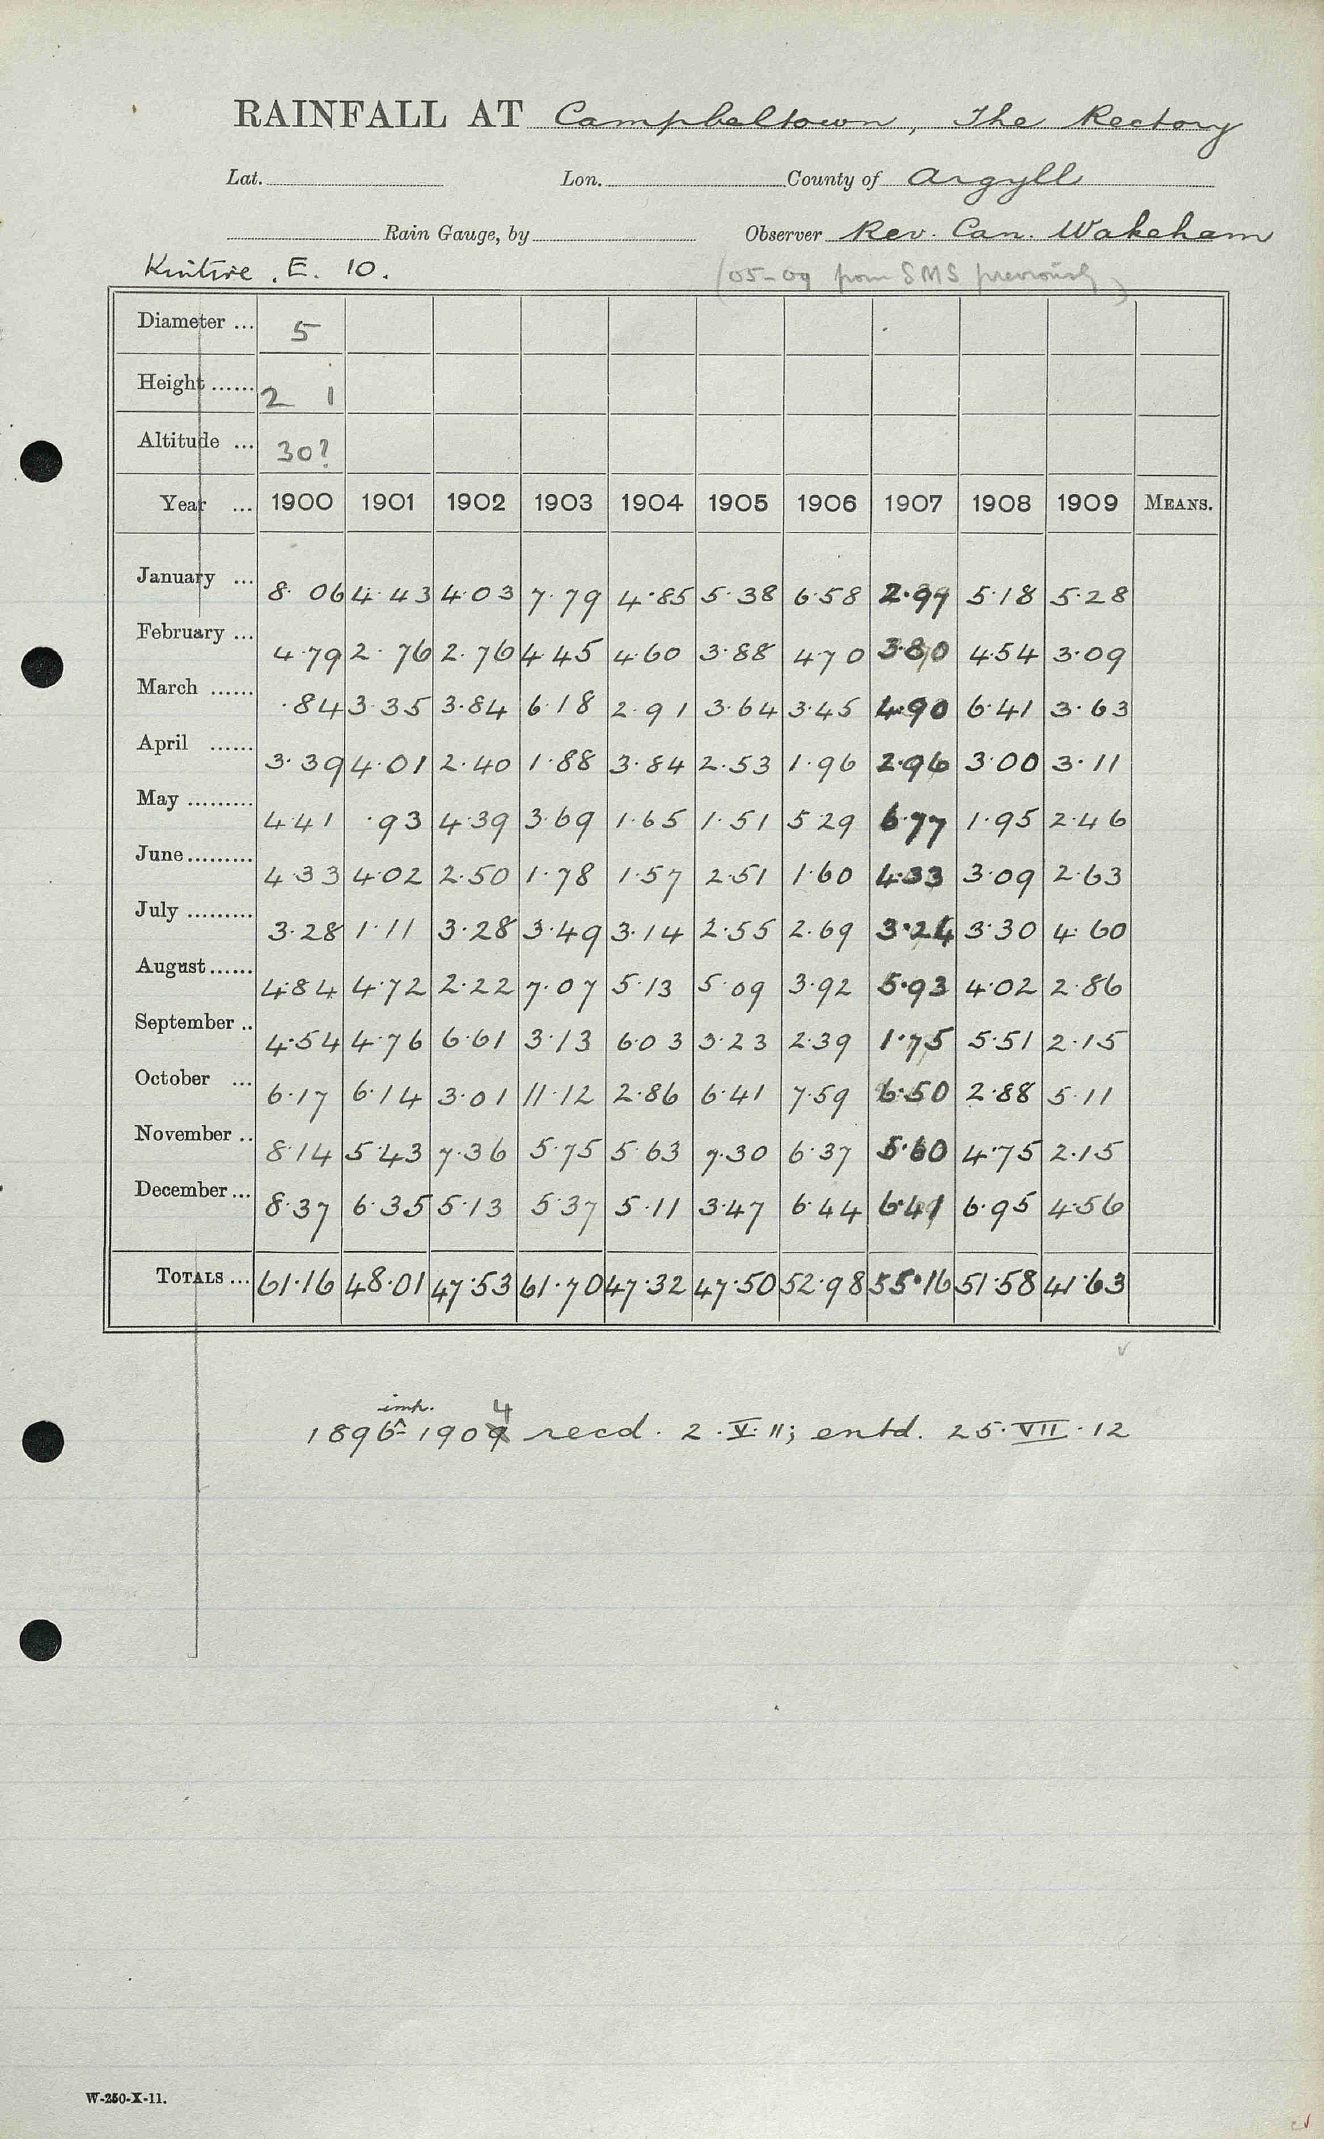 RAINFALL AT Campbeltown, The Rectory
Lat. Lon. County of Argyll
Rain Gauge, by Observer Rev. Can. Wakeham
Kintire. E. 10. (05-09 from SMS previously)
Diameter ... 5
Height ...... 2 1
Altitude ... 30?
Year ... 1900 1901 1902 1903 1904 1905 1906 1907 1908 1909 MEANS.
January ... 8.06 4.43 4.03 7.79 4.85 5.38 6.58 2.97 5.18 5.28
February ... 4.79 2.76 2.76 4.45 4.60 3.88 4.70 3.80 4.54 3.09
March ...... .84 3.35 3.84 6.18 2.91 3.64 3.45 4.90 6.41 3.63
April ...... 3.39 4.01 2.40 1.88 3.84 2.53 1.96 2.96 3.00 3.11
May ......... 4.41 .93 4.39 3.69 1.65 1.51 5.29 6.77 1.95 2.46
June ......... 4.33 4.02 2.50 1.78 1.57 2.51 1.60 4.33 3.09 2.63
July ......... 3.28 1.11 3.28 3.49 3.14 2.55 2.69 3.24 3.30 4.60
August ...... 4.84 4.72 2.22 7.07 5.13 5.09 3.92 5.93 4.02 2.86
September .. 4.54 4.76 6.61 3.13 6.03 3.23 2.39 1.75 5.51 2.15
October ... 6.17 6.14 3.01 11.12 2.86 6.41 7.59 6.50 2.88 5.11
November .. 8.14 5.43 7.36 5.75 5.63 7.30 6.37 5.60 4.75 2.15
December ... 8.37 6.35 5.13 5.37 5.11 3.47 6.44 6.41 6.95 4.56
TOTALS ... 61.16 48.01 47.53 61.70 47.32 47.50 52.98 55.16 51.58 41.63
imp. 4
1896-1909 recd. 2.V.11; entd. 25.VII.12
W-250-X-11.